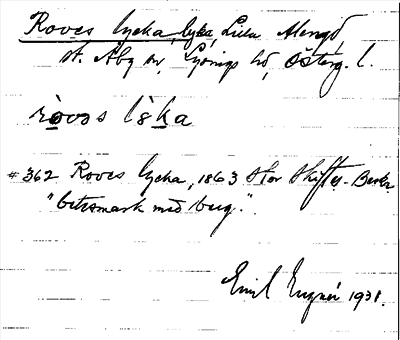 Roves lycka, lyka, Lilla Alengö
st. Åby sn, Lysings hd, Österg. l.
ròvos lỳka
#362 Roves lycka, 1863 Stor Skiftes-Beskr.
"betesmark med berg".
Emil 1931.